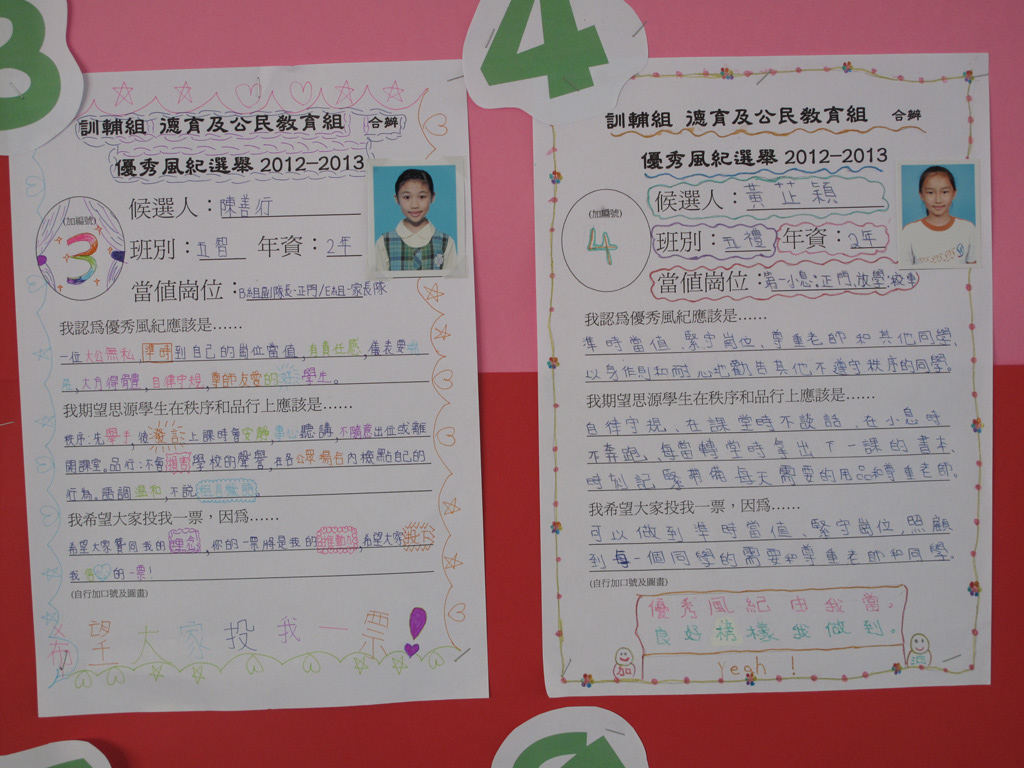 3
訓輔組 德育及公民教育組 合辦
優秀風紀選舉 2012–2013
候選人：陳善行
(加編號)
3
班別：五智 年資：2年
當值崗位：B組副隊長-正門/EA組-家長隊
我認爲優秀風紀應該是……
一位大公無私,準時到自己的崗位當值,有責任感,儀表要
,大方得體,自律守規,尊師友愛的好學生。
我期望思源學生在秩序和品行上應該是……
秩序:先舉手,後發言,上課時會安靜,專心聽講,不隨意出位或離
開課室。品行:不會損害學校的聲譽,在各公眾場合內檢點自己的
行為。語調溫和,不說粗言穢語。
我希望大家投我一票，因爲……
希望大家贊同我的理念,你的一票將是我的推動力,希望大家投下
我 的一票!
(自行加口號及圖畫)
希望大家投我一票!
4
訓輔組 德育及公民教育組 合辦
優秀風紀選舉 2012–2013
候選人：黃芷穎
(加編號)
4
班別：五禮 年資：2年
當值崗位：第一小息:正門、放學:校車
我認爲優秀風紀應該是……
準時當值、緊守崗位、尊重老師和其他同學、
以身作則和耐心地勸告其他不遵守秩序的同學。
我期望思源學生在秩序和品行上應該是……
自律守規、在課堂時不談話、在小息時
不奔跑、每當轉堂時拿出下一課的書本、
時刻記緊帶備每天需要的用品和尊重老師。
我希望大家投我一票，因爲……
可以做到準時當值、緊守崗位,照顧
到每一個同學的需要和尊重老師和同學。
(自行加口號及圖畫)
優秀風紀由我當,
良好榜樣我做到。
加 Yeah! 油